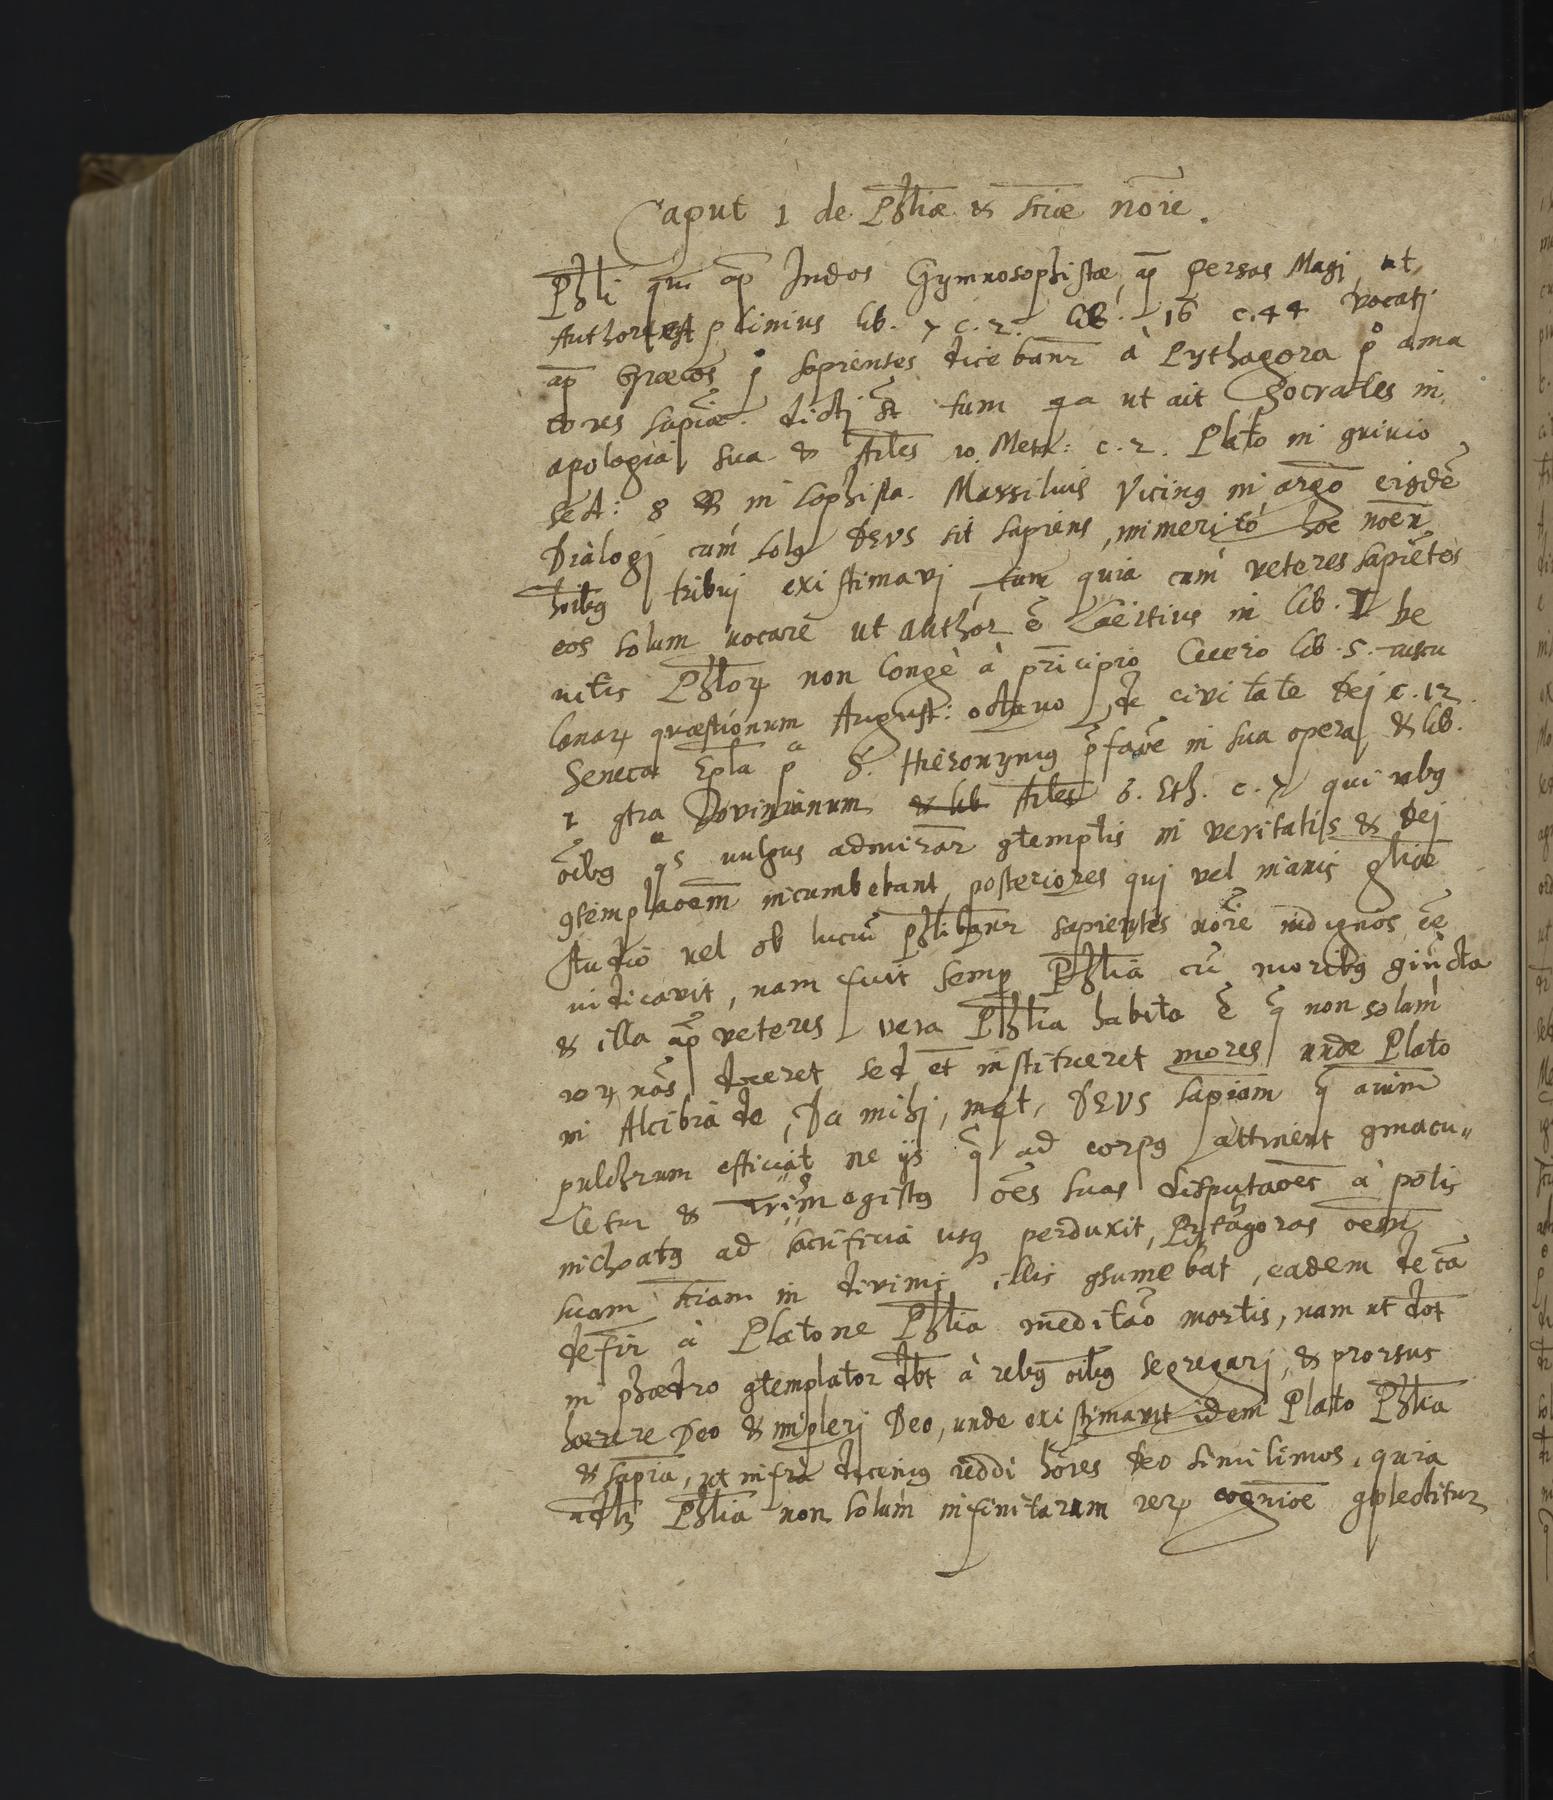 Caput 1 de Phliæ & sciæ nōie.
Phli qui ap Indos Gymnosophistæ, ap Persas Magi, ut
Author est plinius lib. 7 c. 2. lib. 16 c. 44 vocati
ap Græcos sapientes dicebantr à Pythagora p° ama
tores sapiæ. dicti st tum qa ut ait Socrates in
apologia sua & Arles 10. Meta: c. 2. Plato in
sect: 8 & in sophista. Marsilius Vicing in argō eigdē
Dialogi cùm solg DEUS sit sapiens, immeritò hoc noēn
hoibg tribui existimavi, tum quia cùm veteres sapiētes
eos solum vocarē ut author ē Laertius in lib. I be
vitis Phlorꝝ non longè à pricipio Cicero lib. 5. tuscu
lanarꝝ quæstionum August: octavo de civitate Dei c. 12.
Seneca Epla S. Hieronymg pfaōe in sua opera, & lib.
1 gtra Jovinianum & lib Arles 6. Eth. c. 7 qui rebg
oibg qs vulgus admirar gtemptis in veritatis & Dei
gtemplaoem incumbebant, posteriores qui vel inanis gliæ
studio vel ob lucrū phlibantr sapientes nōie indignos ēe
iudicavit, nam fuit semp Phlia cū moribg giūcta
& illa ap veteres vera Phlia habita ē q non solùm
rerꝝ nas doceret sed et institueret mores unde Plato
in Alcibiade, Da mihi, inqt, DEUS sapiam q aium
pulchrum efficiat ne ijs q ad corpg attinent gmacu„
letur & Trimegistg oēs suas disputaoes à
inchoatg ad sacrificia usq perduxit, Pytagoras oem
suam sciam in divinis illis gsumebat, eadem de cā
defir à Platone Phlia meditaō mortis, nam ut dot
in phædro gtemplator dbt à rebg oibg segregari, & prorsus
hærere Deo & impleri Deo, unde existimavit idem Plato Phlia
& sapia, ut infra dicemg reddi hoies deo similimos, quia
Phlia non solùm infinitarum rerꝝ cognioē gplectitur